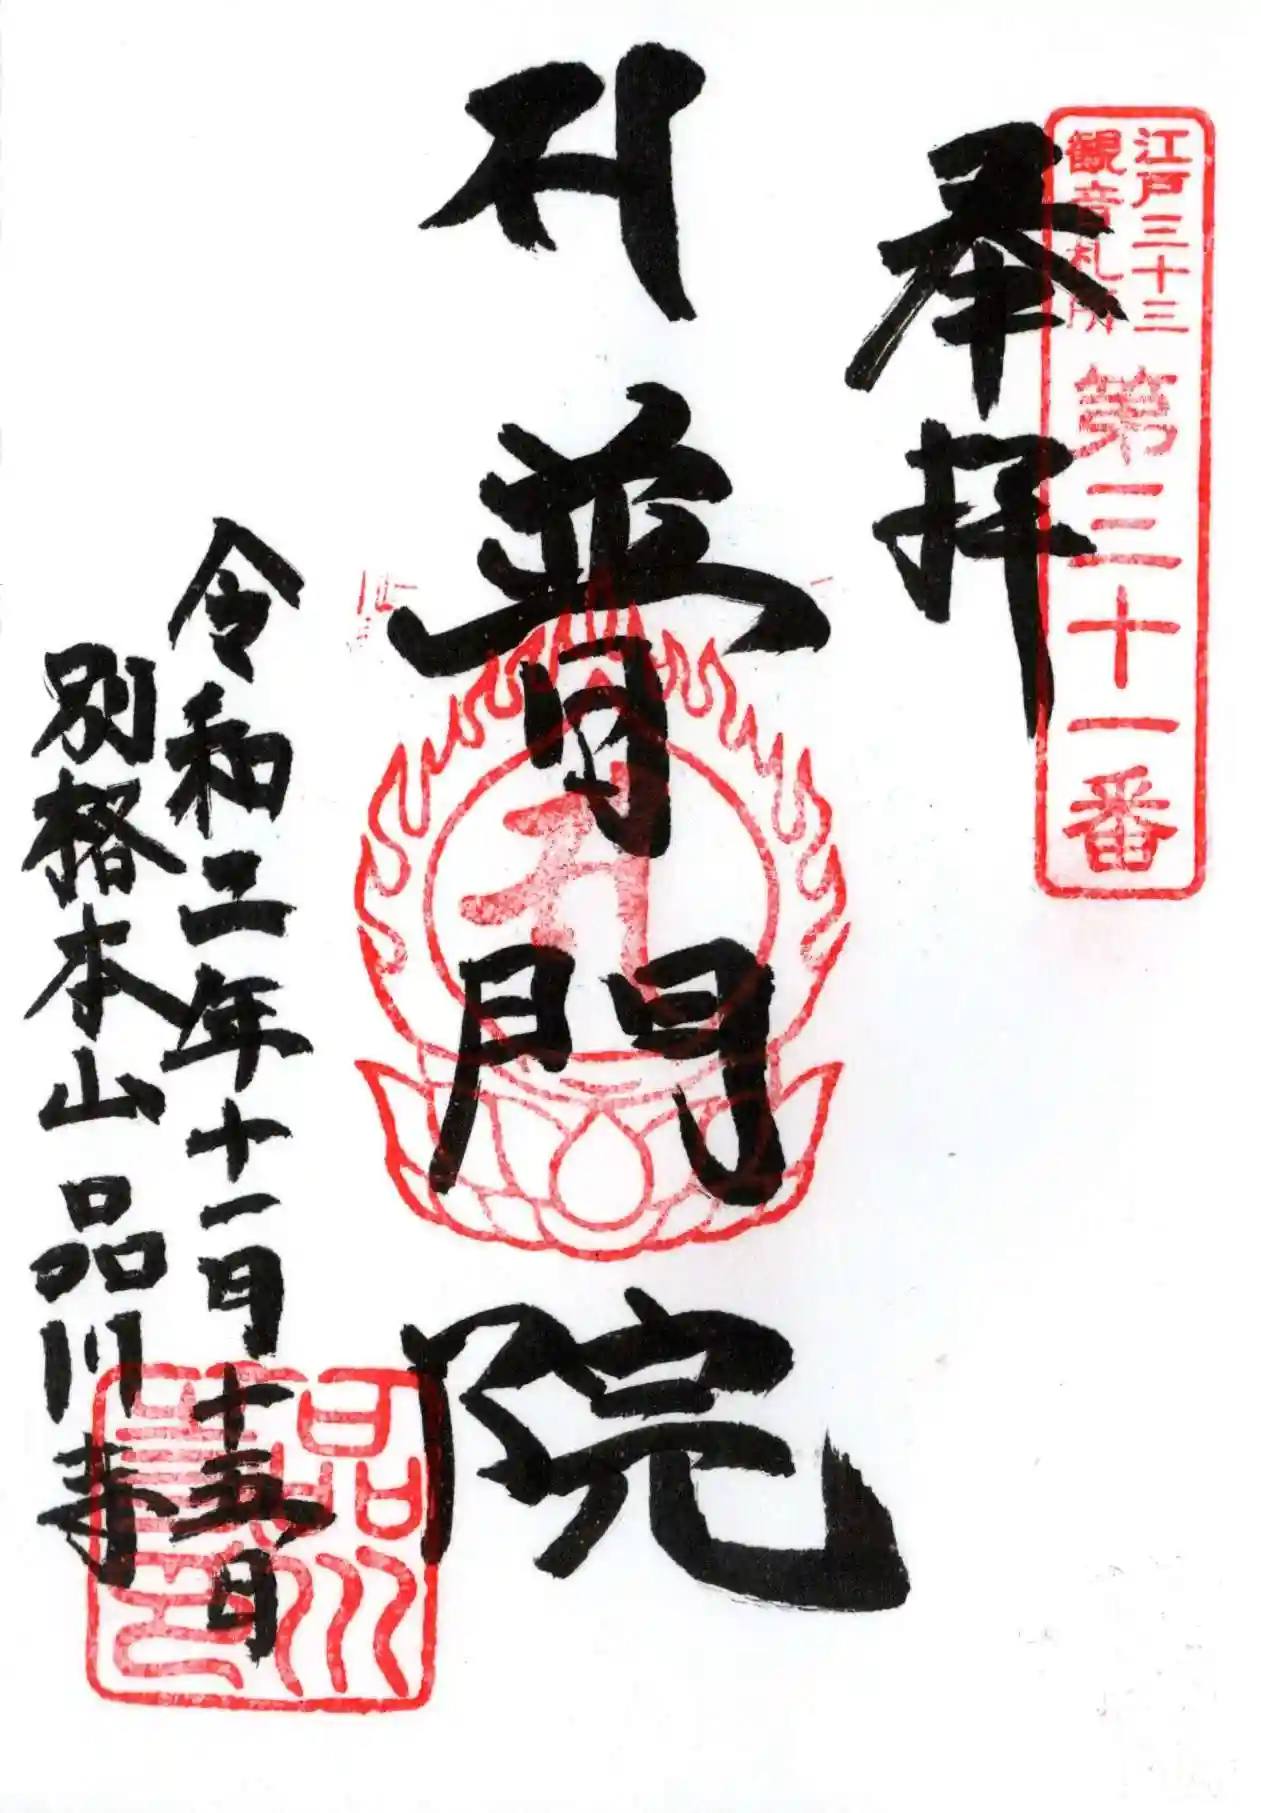 江戸三十三
観音札所
第三十一番
奉拝
サ 普門院
令和二年十一月十五日
別格本山 品川寺